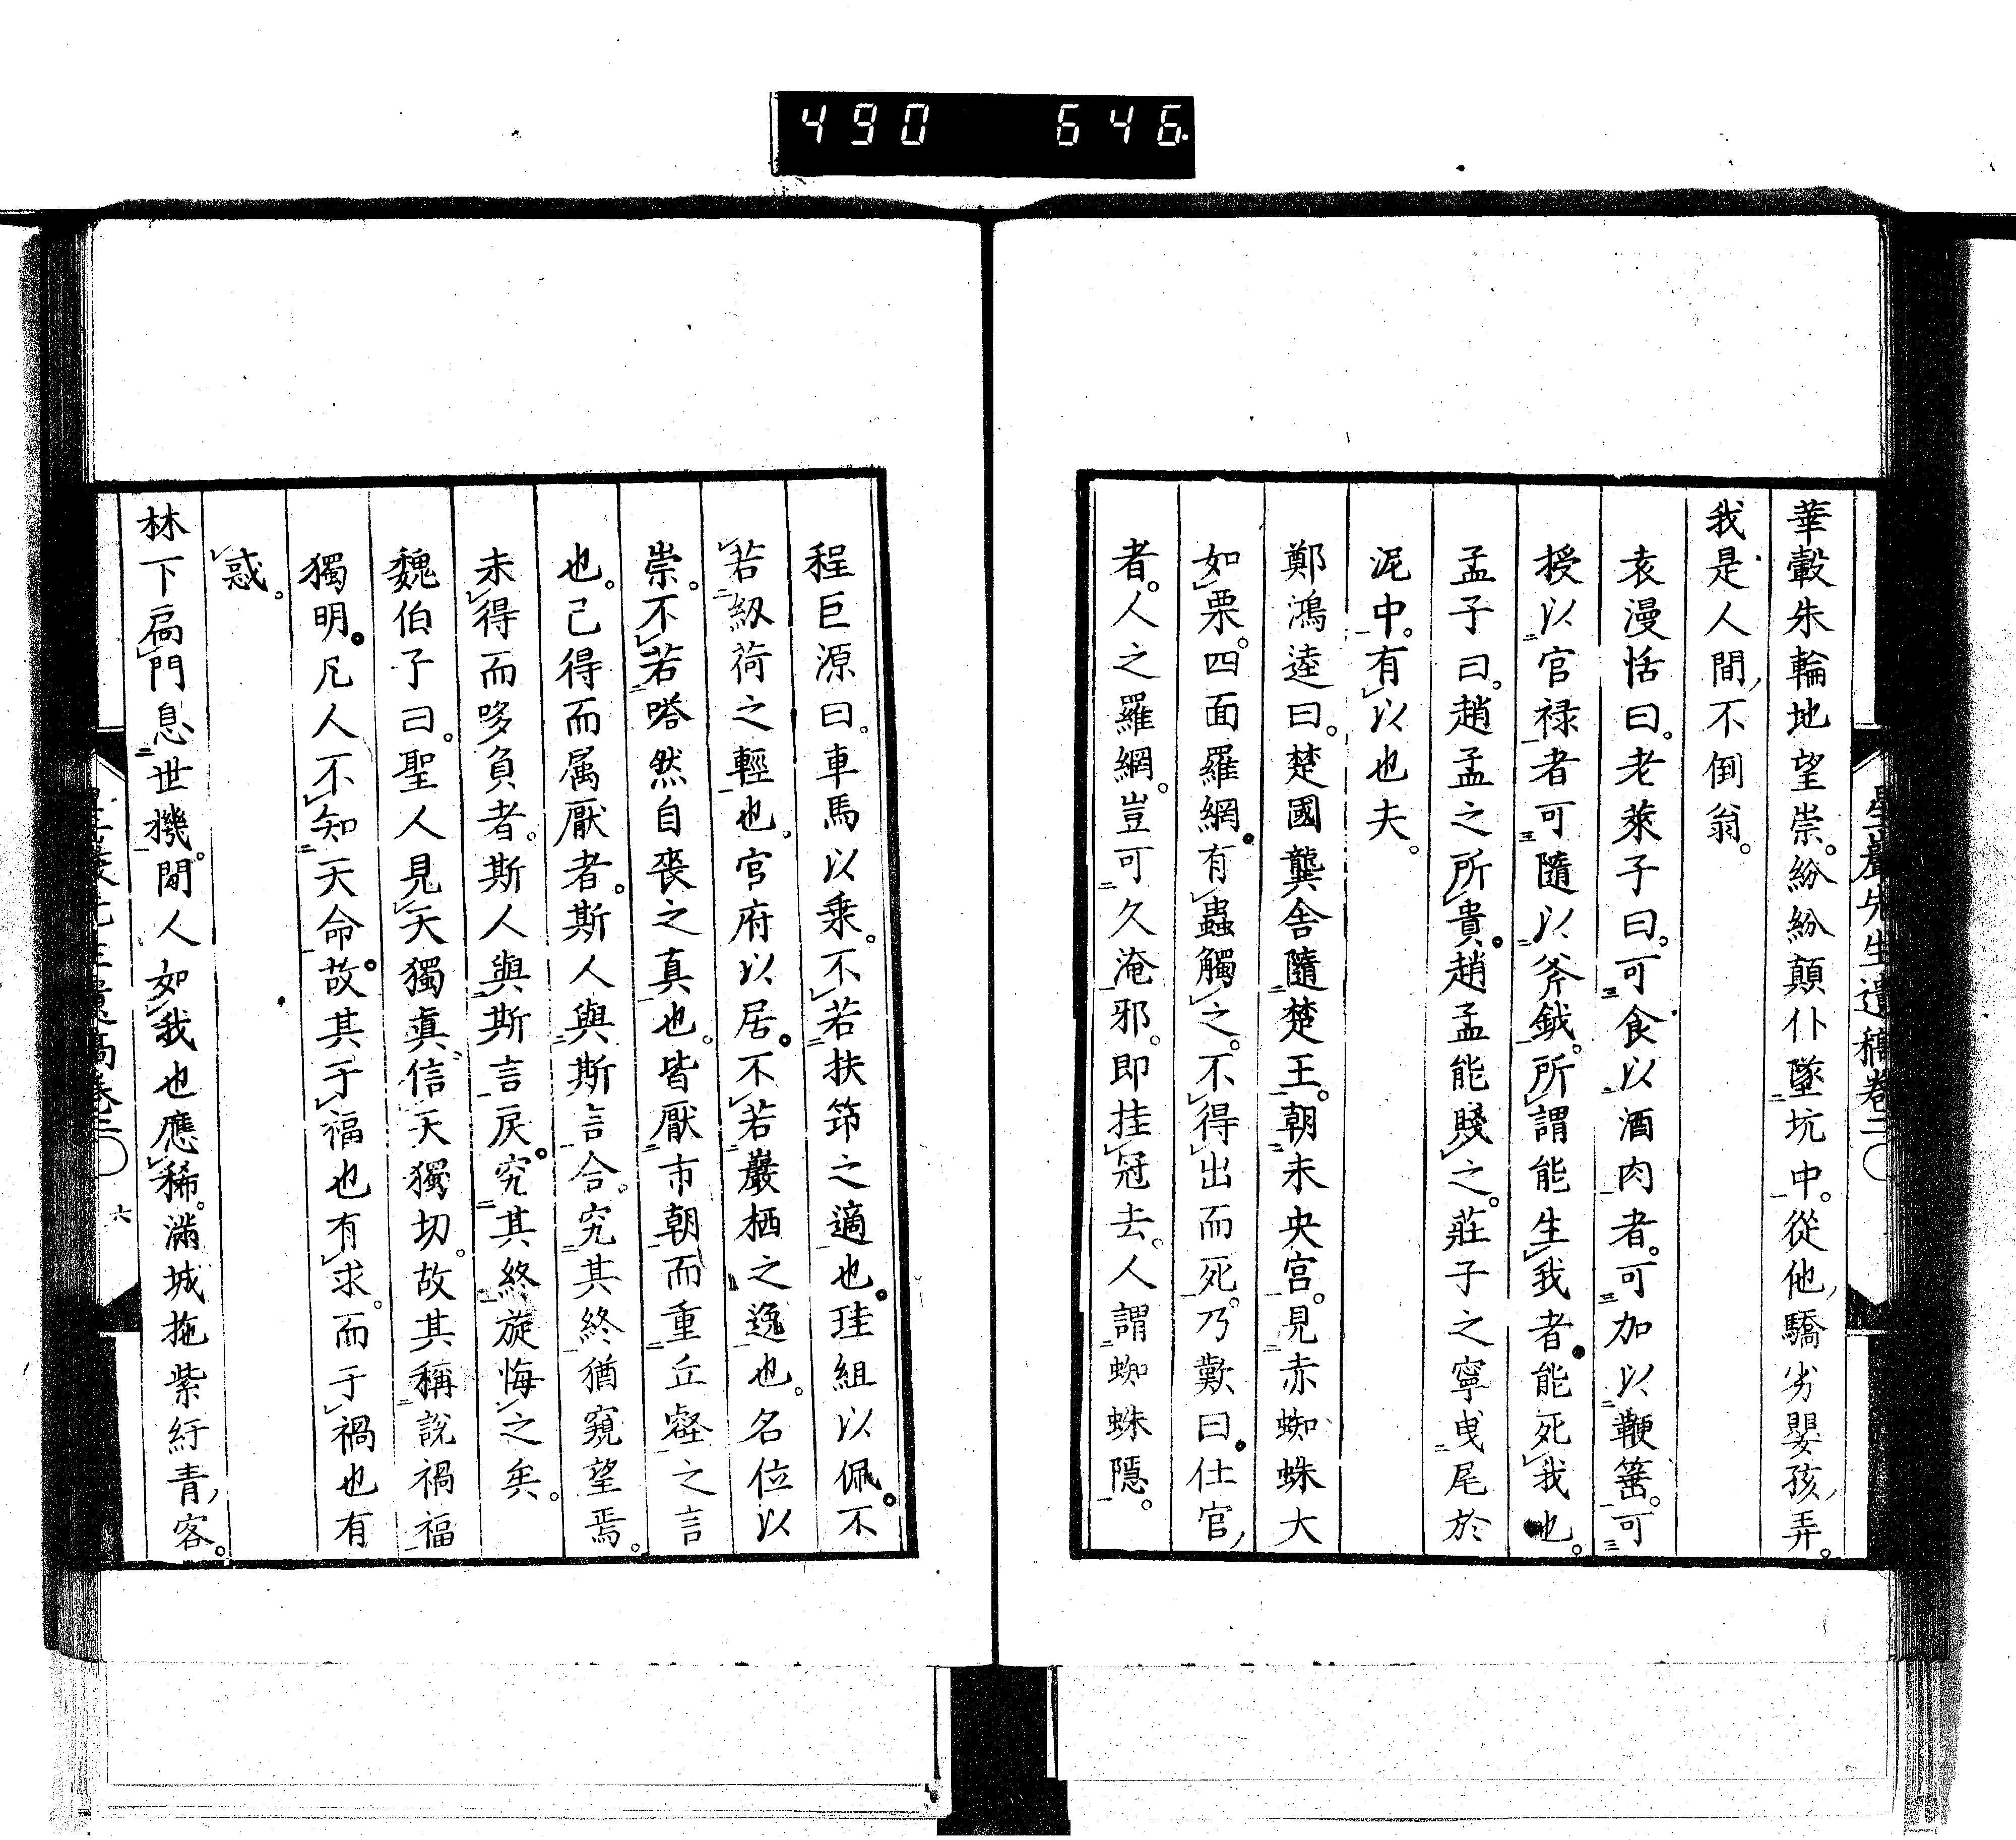 490 646
星巖先生遺稿卷二
華轂朱輪地望崇。紛紛顛仆墜坑中。從他驕劣嬰孩弄。
我是人間不倒翁。
袁漫恬曰。老萊子曰。可食以酒肉者。可加以鞭箠。可
授以官祿者可隨以斧鉞。所謂能生我者。能死我也。
孟子曰。趙孟之所貴。趙孟能賤之。莊子之寧曳尾於
泥中。有以也夫。
鄭鴻逵曰。楚國龔舍隨楚王。朝未央宮。見赤蜘蛛大
如栗。四面羅網。有蟲觸之。不得出而死。乃歎曰。仕官
者。人之羅網。豈可久淹邪。即挂冠去。人謂蜘蛛隱。
程巨源曰。車馬以乘。不若扶笻之適也。珪組以佩。不
若紉荷之輕也。官府以居。不若巖栖之逸也。名位以
崇。不若嗒然自喪之真也。皆厭市朝而重丘壑之言
也。己得而属厭者。斯人與斯言合。究其終猶窺望焉。
未得而哆負者。斯人與斯言戾。究其終旋悔之矣。
魏伯子曰。聖人見天獨眞。信天獨切。故其稱說禍福
獨明。凡人不知天命。故其于福也有求。而于禍也有
惑。
林下扃門息世機。閒人如我也應稀。滿城拖紫紆青客。
六